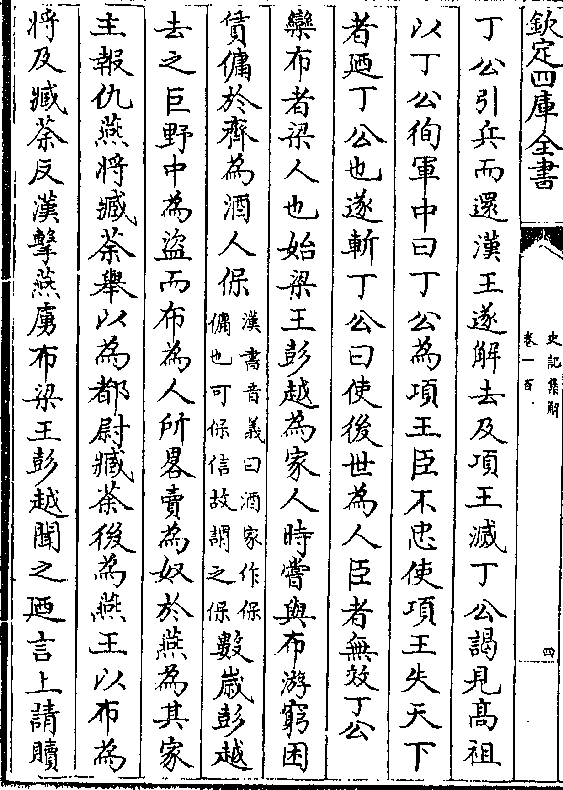 欽定四庫全書
史記集解
卷一百
四
丁公引兵而還漢王遂解去及項王滅丁公謁見高祖
以丁公徇軍中曰丁公為項王臣不忠使項王失天下
者廼丁公也遂斬丁公曰使後世為人臣者無效丁公
欒布者梁人也始梁王彭越為家人時嘗與布游窮困
賃傭於齊為酒人保漢書音義曰酒家作保傭也可保信故謂之保數歲彭越
去之巨野中為盜而布為人所畧賣為奴於燕為其家
主報仇燕將臧荼舉以為都尉臧荼後為燕王以布為
將及臧荼反漢擊燕虜布梁王彭越聞之廼言上請贖